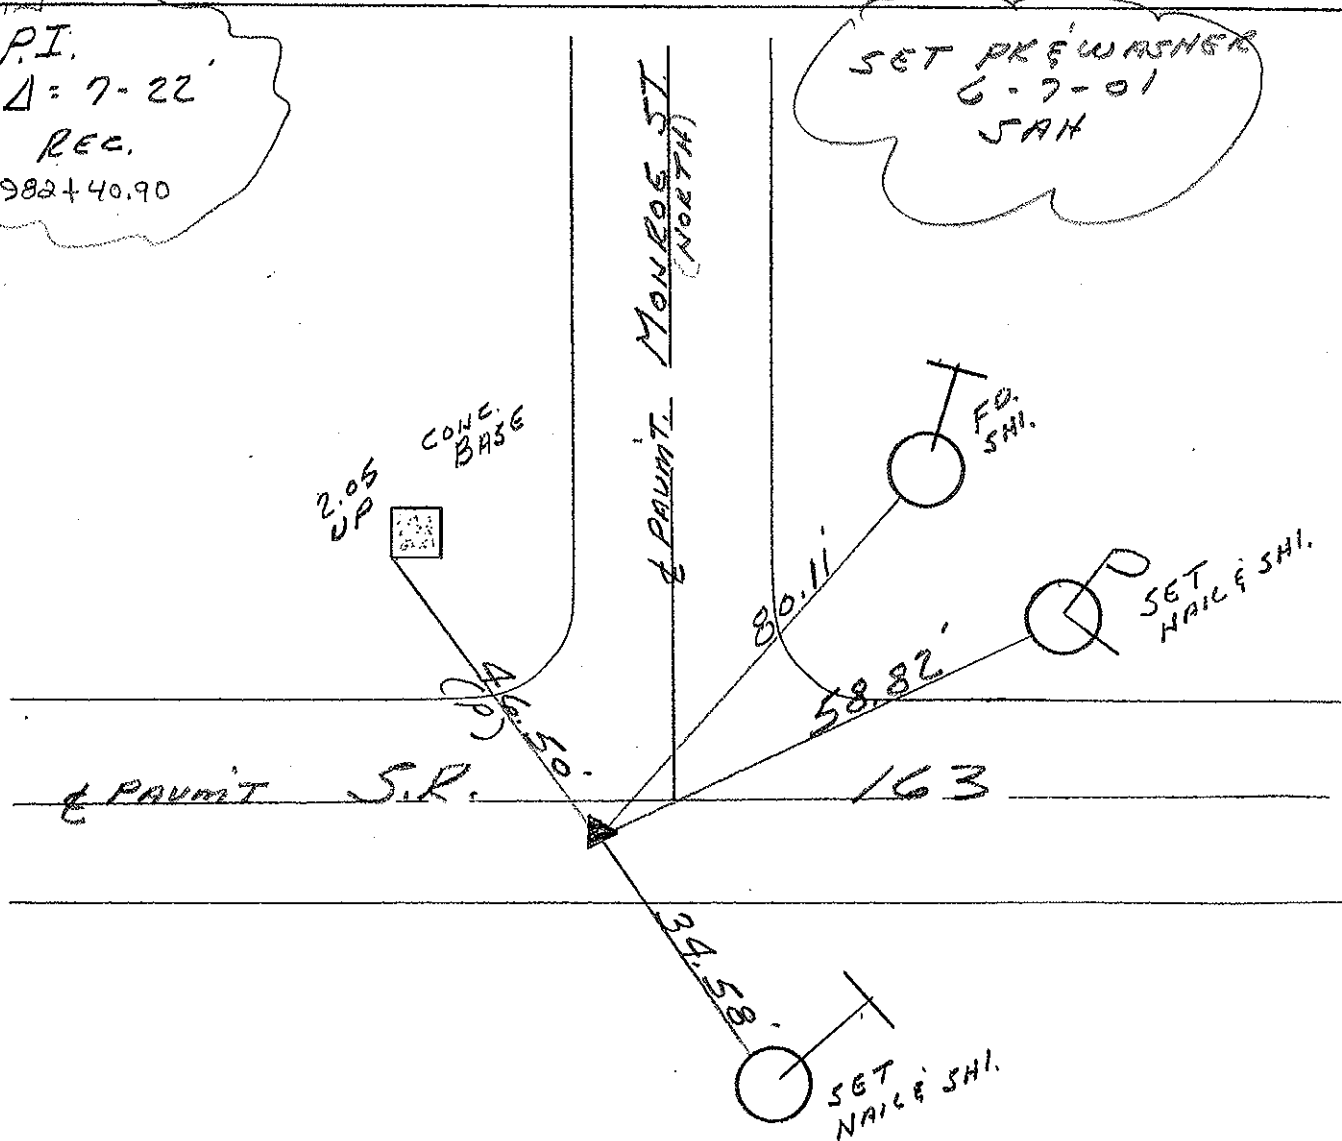 P.I.
Δ = 7-22'
REC.
982+40.90
SET PK & WASHER
6-7-01
SAH
MONROE ST.
(NORTH)
℄ PAVM'T.
CONC.
BASE
2.05
UP
FD.
SHI.
80.11'
SET
NAIL & SHI.
58.82'
46.50'
℄ PAVM'T S.R. 163
34.58'
SET
NAIL & SHI.